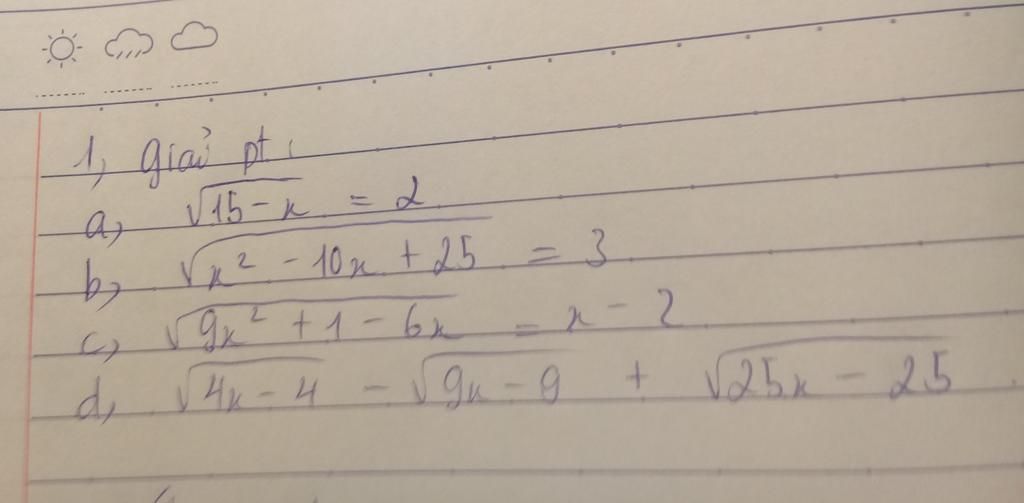 1, Giải pt:
a, √15-x = 2
b, √x² - 10x + 25 = 3
c, √9x² + 1 - 6x = x - 2
d, √4x - 4 - √9x - 9 + √25x - 25